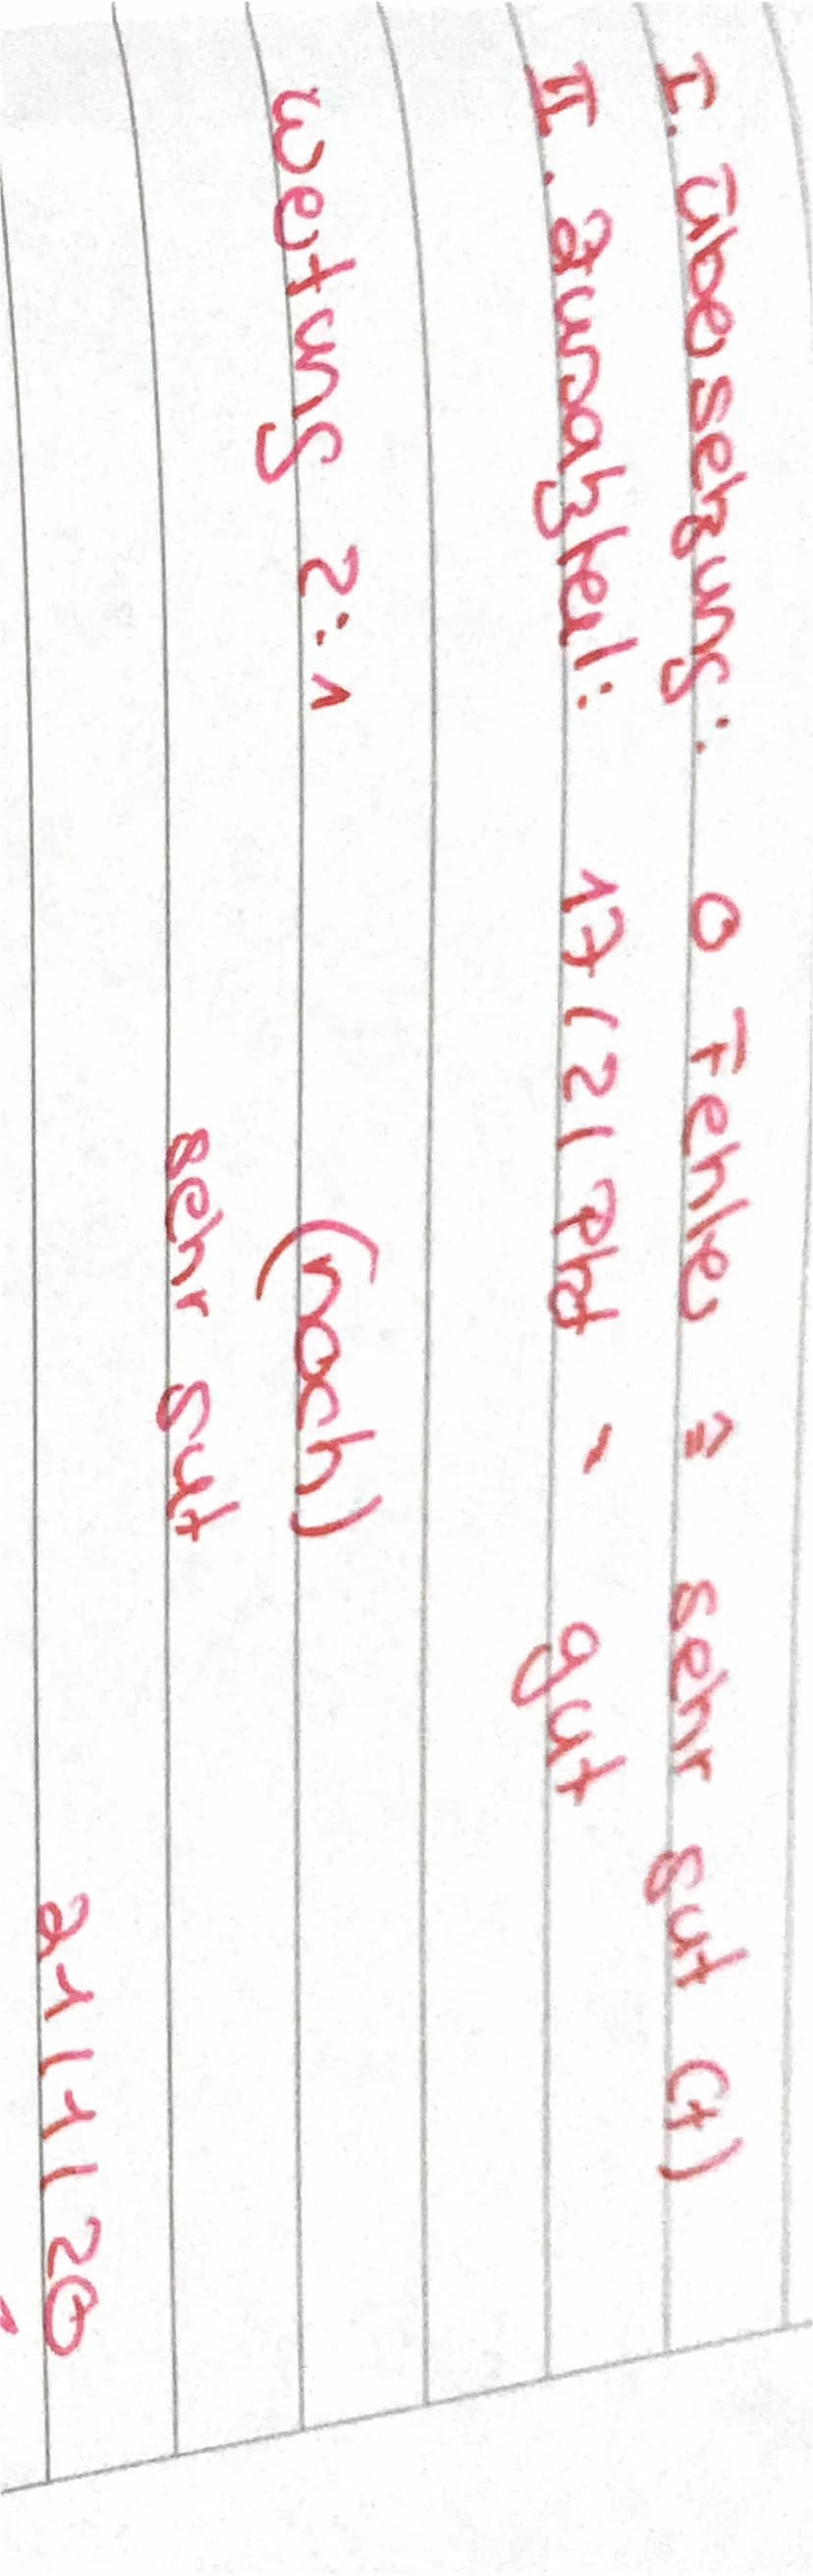 I. Übersetzung: 0 Fehler ≙ sehr gut (+)
II. Aufgabteil: 17/21 Pkt - gut
Wertung 2:1 (noch)
sehr gut
21/1/20